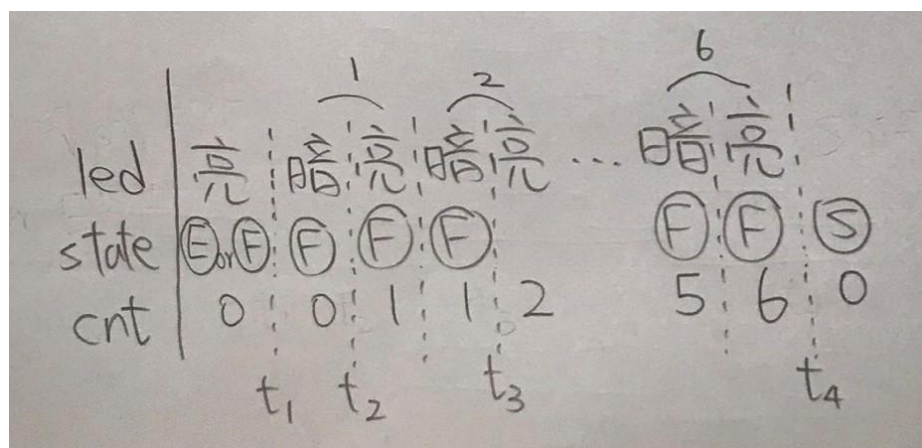 1 2 6
led 亮 暗 亮 暗 亮 ... 暗 亮
state E or F F F F F F S
cnt 0 0 1 1 2 5 6 0
t₁ t₂ t₃ t₄